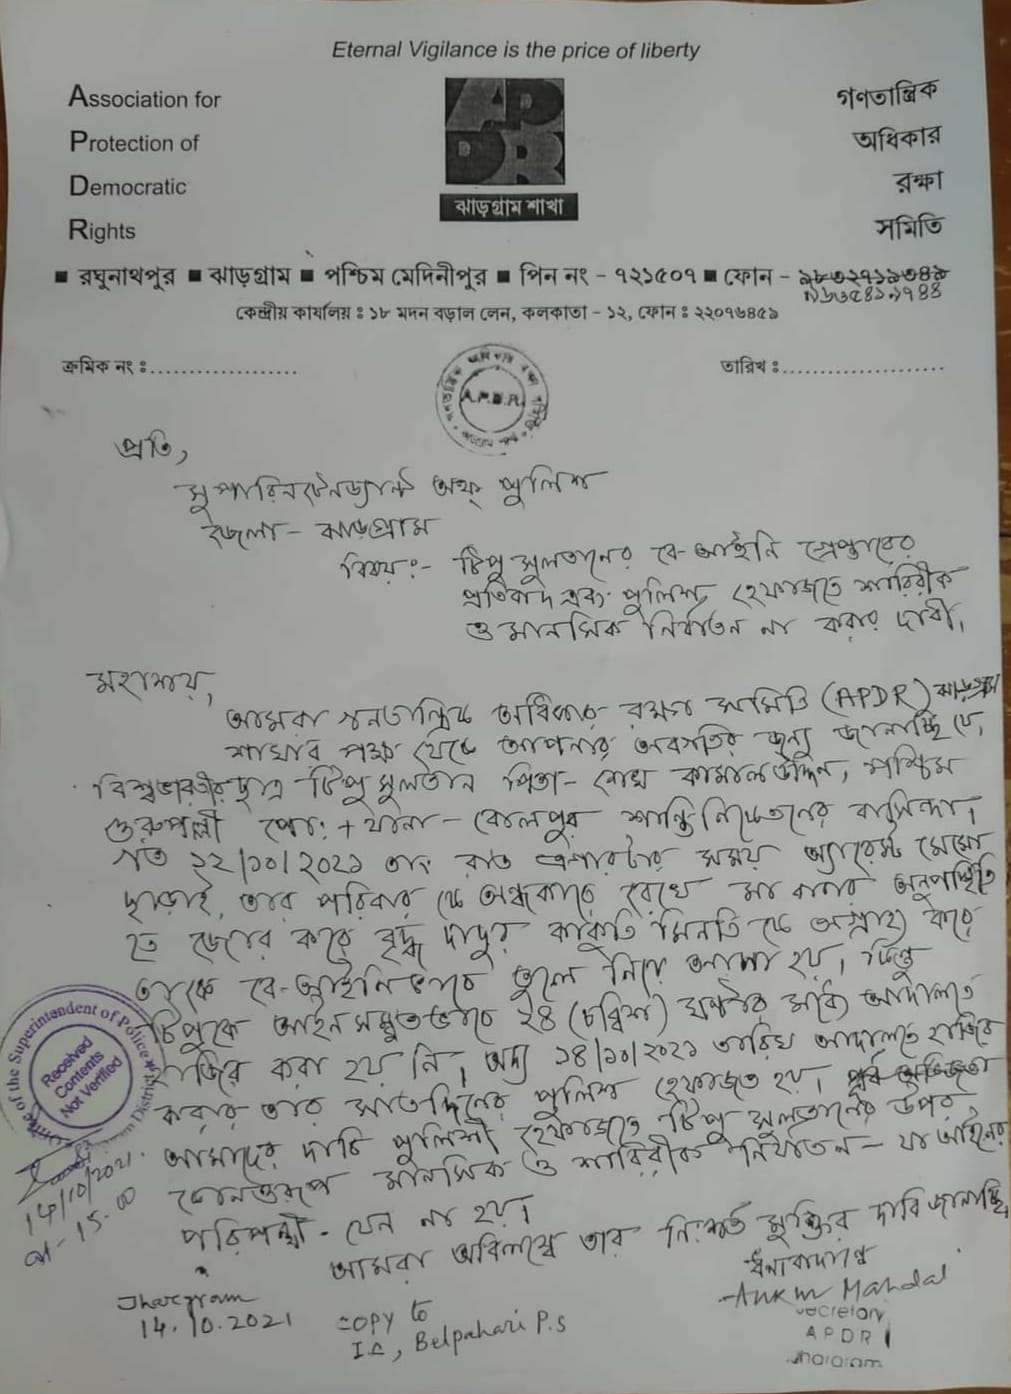 Eternal Vigilance is the price of liberty
Association for
Protection of
Democratic
Rights
APDR
ঝাড়গ্রাম শাখা
গণতান্ত্রিক
অধিকার
রক্ষা
সমিতি
■ রঘুনাথপুর ■ ঝাড়গ্রাম ■ পশ্চিম মেদিনীপুর ■ পিন নং - ৭২১৫০৭ ■ ফোন -
কেন্দ্রীয় কার্যালয় : ১৮ মদন বড়াল লেন, কলকাতা - ১২, ফোন : ২২০৭৬৪৫৯
ক্রমিক নং :...................
তারিখ :.....................
A.P.D.R.
প্রতি,
সুপারিনটেনড্যান্ট অফ্ পুলিশ
জেলা - ঝাড়গ্রাম
বিষয়:- টিপু সুলতানের বে-আইনি গ্রেপ্তারের
প্রতিবাদ এবং পুলিশ হেফাজতে শারিরীক
ও মানসিক নির্যাতন না করার দাবী।
মহাশয়,
আমরা গনতান্ত্রিক অধিকার রক্ষা সমিতি (APDR) ঝাড়গ্রাম
শাখার পক্ষ থেকে আপনার অবগতির জন্য জানাচ্ছি যে,
বিশ্বভারতীর ছাত্র টিপু সুলতান পিতা - শেখ কামালউদ্দিন, পশ্চিম
গুরুপল্লী পো: + থানা - বোলপুর শান্তিনিকেতনের বাসিন্দা।
গত ১২/১০/২০২১ তাং রাত এগারটার সময় অ্যারেস্ট মেমো
ছাড়াই, তার পরিবার কে অন্ধকারে রেখে মা বাবার অনুপস্থিতি
তে জোর করে বৃদ্ধ দাদুর কাকুতি মিনতি কে অগ্রাহ্য করে
তাকে বে-আইনিভাবে তুলে নিয়ে আসা হয়। কিন্তু
টিপুকে আইনসম্মতভাবে ২৪ (চব্বিশ) ঘন্টার মধ্যে আদালতে
হাজির করা হয় নি। অদ্য ১৪/১০/২০২১ তারিখ আদালতে হাজির
করার তার সাতদিনের পুলিশ হেফাজত হয়।
আমাদের দাবি পুলিশী হেফাজতে টিপু সুলতানের উপর
কোনওরূপ মানসিক ও শারিরীক নির্যাতন - যা আইনের
পরিপন্থী - যেন না হয়।
আমরা অবিলম্বে তার নি:শর্ত মুক্তির দাবি জানাচ্ছি
ধন্যবাদান্তে
Ankur Mandal
Secretary
APDR
Jhargram
Office of the Superintendent of Police
Received
Contents
Not Verified
14/10/2021.
at - 15.00
Jhargram
14.10.2021
COPY to
I.C, Belpahari P.S